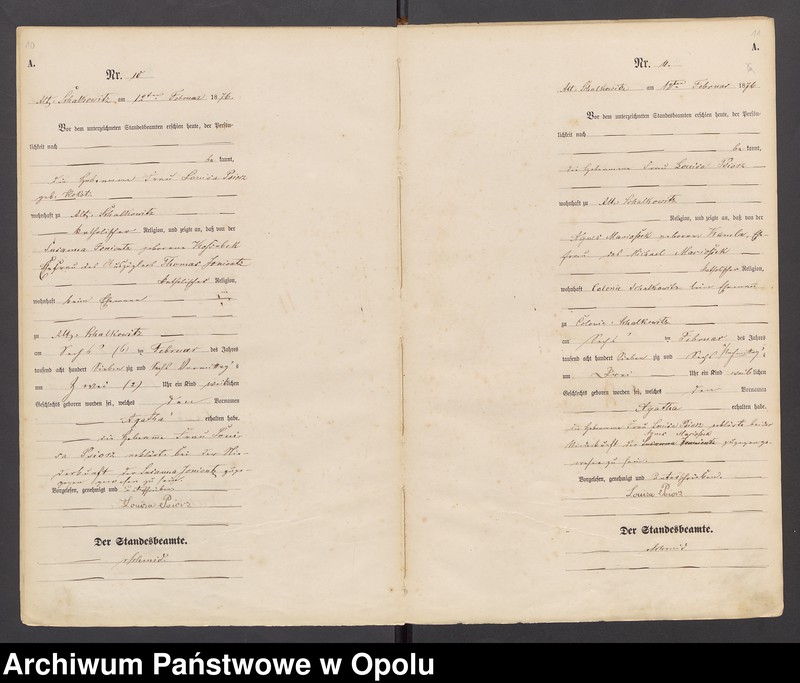 10
A.
Nr. 10
Alt-Schalkowitz am 12ten Februar 1876
Vor dem unterzeichneten Standesbeamten erschien heute, der Persön-
lichkeit nach
be kannt,
die Hebamme Frau Louisa Psiorz
geb.
wohnhaft zu Alt-Schalkowitz
katholischer Religion, und zeigte an, daß von der
Susanna geborene
Ehefrau des Thomas
katholischer Religion,
wohnhaft beim Ehemann
zu Alt-Schalkowitz
am Sechs (6) ten Februar des Jahres
tausend acht hundert sieben zig und sechs Vormittags
um Zwei (2) Uhr ein Kind weiblichen
Geschlechts geboren worden sei, welches den Vornamen
Agatha erhalten habe.
die Hebamme Frau Loui-
sa Psiorz erklärte bei der Nie-
derkunft der Susanna zuge-
gen gewesen zu sein.
Vorgelesen, genehmigt und unterschrieben
Louisa Psiorz
Der Standesbeamte.
11
A.
Nr. 11.
Alt-Schalkowitz am Februar 1876
Vor dem unterzeichneten Standesbeamten erschien heute, der Persön-
lichkeit nach
be kannt,
die Hebamme Frau Louisa Psiorz
wohnhaft zu Alt-Schalkowitz
Religion, und zeigte an, daß von der
Agnes geborenen Ehe-
frau des Michael
katholischer Religion,
wohnhaft Colonie Schalkowitz beim Ehemann
zu Colonie-Schalkowitz
am ten Februar des Jahres
tausend acht hundert sieben zig und sechs
um Drei Uhr ein Kind weiblichen
Geschlechts geboren worden sei, welches den Vornamen
Agatha erhalten habe.
die Hebamme Frau Louisa Psiorz erklärte bei der
Agnes
Niederkunft der Susanna zugegen ge-
wesen zu sein
Vorgelesen, genehmigt und unterschrieben.
Louisa Psiorz
Der Standesbeamte.
Archiwum Państwowe w Opolu